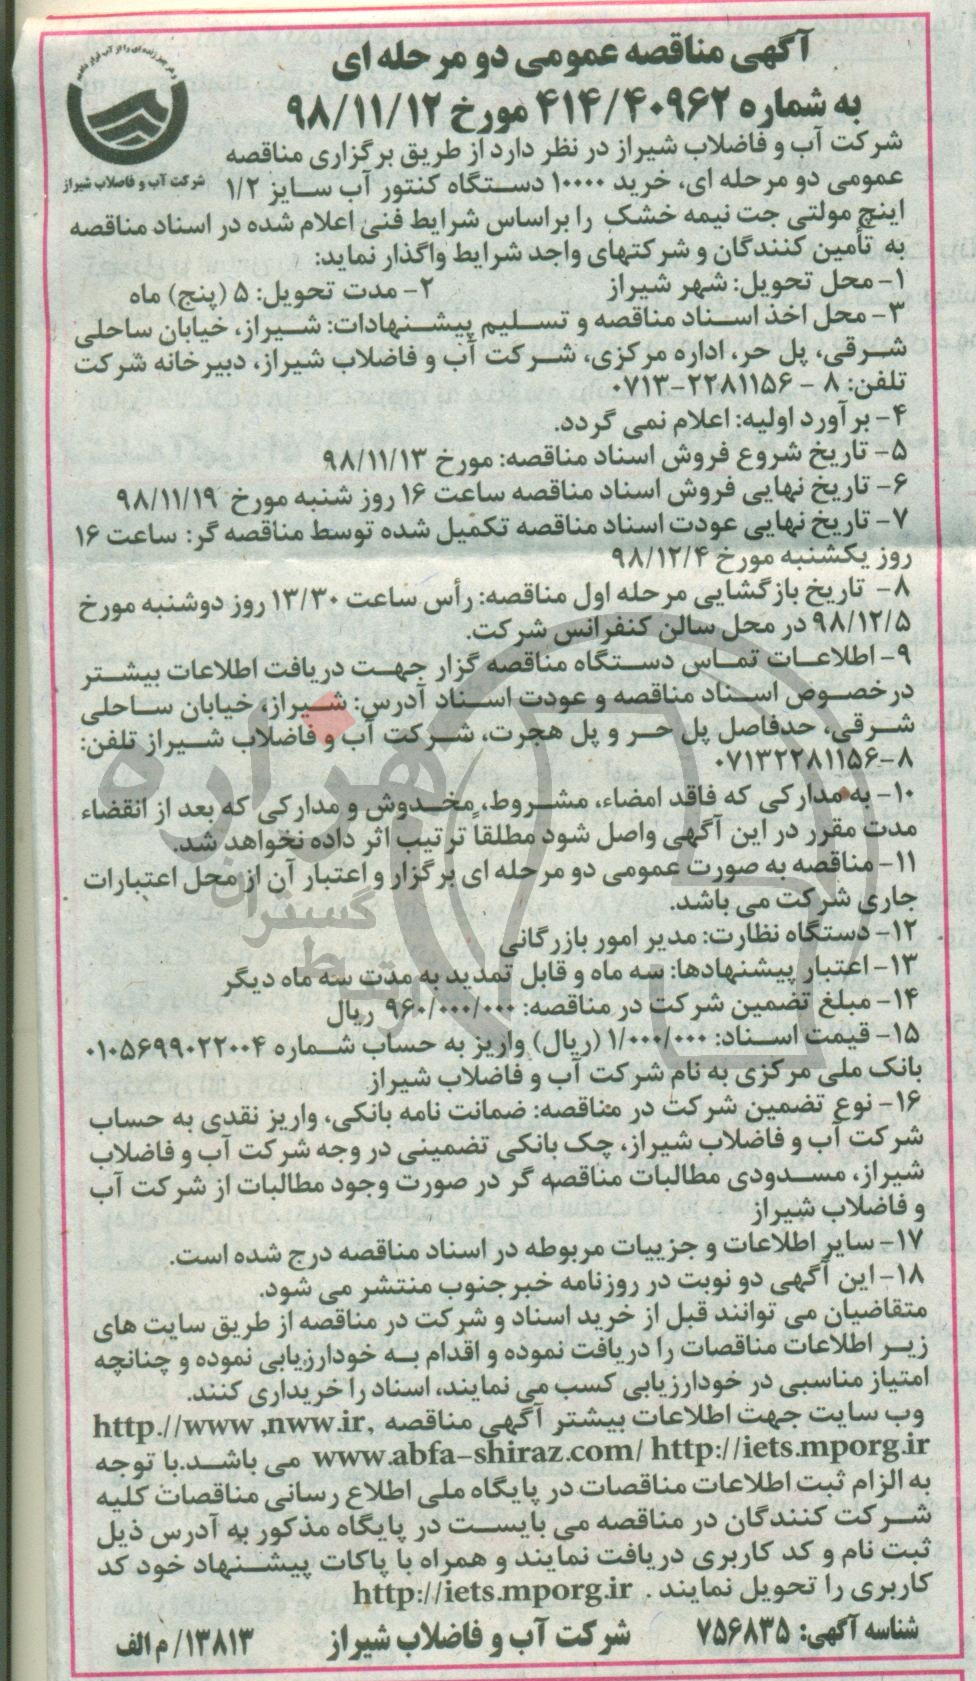 آگهی مناقصه عمومی دو مرحله ای
به شماره ۴۱۴/۴۰۹۶۲ مورخ ۹۸/۱۱/۱۲
شرکت آب و فاضلاب شیراز
شرکت آب و فاضلاب شیراز در نظر دارد از طریق برگزاری مناقصه
عمومی دو مرحله ای، خرید ۱۰۰۰۰ دستگاه کنتور آب سایز ۱/۲
اینچ مولتی جت نیمه خشک را براساس شرایط فنی اعلام شده در اسناد مناقصه
به تأمین کنندگان و شرکتهای واجد شرایط واگذار نماید:
۱- محل تحویل: شهر شیراز ۲- مدت تحویل: ۵ (پنج) ماه
۳- محل اخذ اسناد مناقصه و تسلیم پیشنهادات: شیراز، خیابان ساحلی
شرقی، پل حر، اداره مرکزی، شرکت آب و فاضلاب شیراز، دبیرخانه شرکت
تلفن: ۸ - ۰۷۱۳-۲۲۸۱۱۵۶
۴- برآورد اولیه: اعلام نمی گردد.
۵- تاریخ شروع فروش اسناد مناقصه: مورخ ۹۸/۱۱/۱۳
۶- تاریخ نهایی فروش اسناد مناقصه ساعت ۱۶ روز شنبه مورخ ۹۸/۱۱/۱۹
۷- تاریخ نهایی عودت اسناد مناقصه تکمیل شده توسط مناقصه گر: ساعت ۱۶
روز یکشنبه مورخ ۹۸/۱۲/۴
۸- تاریخ بازگشایی مرحله اول مناقصه: رأس ساعت ۱۳/۳۰ روز دوشنبه مورخ
۹۸/۱۲/۵ در محل سالن کنفرانس شرکت.
۹- اطلاعات تماس دستگاه مناقصه گزار جهت دریافت اطلاعات بیشتر
درخصوص اسناد مناقصه و عودت اسناد آدرس: شیراز، خیابان ساحلی
شرقی، حدفاصل پل حر و پل هجرت، شرکت آب و فاضلاب شیراز تلفن:
۰۷۱۳۲۲۸۱۱۵۶-۸
۱۰- به مدارکی که فاقد امضاء، مشروط، مخدوش و مدارکی که بعد از انقضاء
مدت مقرر در این آگهی واصل شود مطلقاً ترتیب اثر داده نخواهد شد.
۱۱- مناقصه به صورت عمومی دو مرحله ای برگزار و اعتبار آن از محل اعتبارات
جاری شرکت می باشد.
۱۲- دستگاه نظارت: مدیر امور بازرگانی
۱۳- اعتبار پیشنهادها: سه ماه و قابل تمدید به مدت سه ماه دیگر
۱۴- مبلغ تضمین شرکت در مناقصه: ۹۶۰/۰۰۰/۰۰۰ ریال
۱۵- قیمت اسناد: ۱/۰۰۰/۰۰۰ (ریال) واریز به حساب شماره ۰۱۰۵۶۹۹۰۲۲۰۰۴
بانک ملی مرکزی به نام شرکت آب و فاضلاب شیراز
۱۶- نوع تضمین شرکت در مناقصه: ضمانت نامه بانکی، واریز نقدی به حساب
شرکت آب و فاضلاب شیراز، چک بانکی تضمینی در وجه شرکت آب و فاضلاب
شیراز، مسدودی مطالبات مناقصه گر در صورت وجود مطالبات از شرکت آب
و فاضلاب شیراز
۱۷- سایر اطلاعات و جزییات مربوطه در اسناد مناقصه درج شده است.
۱۸- این آگهی دو نوبت در روزنامه خبرجنوب منتشر می شود.
متقاضیان می توانند قبل از خرید اسناد و شرکت در مناقصه از طریق سایت های
زیر اطلاعات مناقصات را دریافت نموده و اقدام به خودارزیابی نموده و چنانچه
امتیاز مناسبی در خودارزیابی کسب می نمایند، اسناد را خریداری کنند.
وب سایت جهت اطلاعات بیشتر آگهی مناقصه http.//www ,nww.ir,
www.abfa-shiraz.com/ http://iets.mporg.ir می باشد.با توجه
به الزام ثبت اطلاعات مناقصات در پایگاه ملی اطلاع رسانی مناقصات کلیه
شرکت کنندگان در مناقصه می بایست در پایگاه مذکور به آدرس ذیل
ثبت نام و کد کاربری دریافت نمایند و همراه با پاکات پیشنهاد خود کد
کاربری را تحویل نمایند . http://iets.mporg.ir
شناسه آگهی: ۷۵۶۸۳۵ شرکت آب و فاضلاب شیراز ۱۳۸۱۳/ م الف
هزاره
گستران